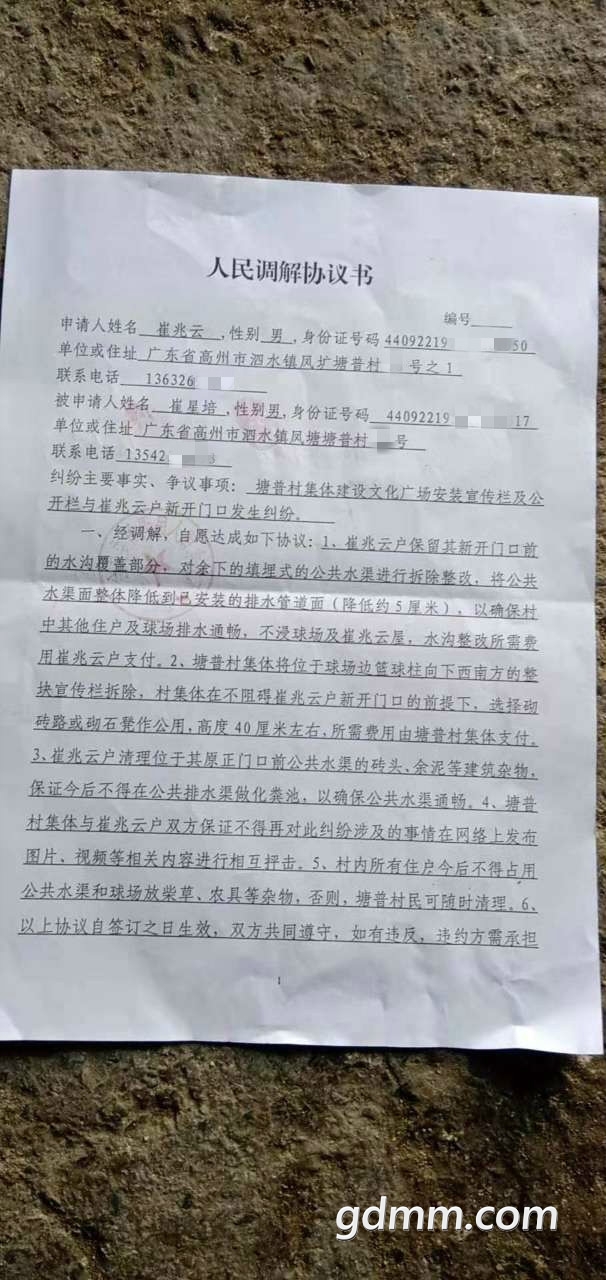 人民调解协议书
编号
申请人姓名 崔兆云 ,性别 男 ,身份证号码 44092219 50
单位或住址 广东省高州市泗水镇凤圹塘普村 号之1
联系电话 136326
被申请人姓名 崔星培 ,性别男,身份证号码 44092219 17
单位或住址 广东省高州市泗水镇凤塘塘普村 号
联系电话 13542
纠纷主要事实、争议事项: 塘普村集体建设文化广场安装宣传栏及公
开栏与崔兆云户新开门口发生纠纷。
一、经调解,自愿达成如下协议:1、崔兆云户保留其新开门口前
的水沟覆盖部分,对余下的填埋式的公共水渠进行拆除整改,将公共
水渠面整体降低到已安装的排水管道面(降低约5厘米),以确保村
中其他住户及球场排水通畅,不浸球场及崔兆云屋,水沟整改所需费
用崔兆云户支付。2、塘普村集体将位于球场边篮球柱向下西南方的整
块宣传栏拆除,村集体在不阻碍崔兆云户新开门口的前提下,选择砌
砖路或砌石凳作公用,高度40厘米左右,所需费用由塘普村集体支付。
3、崔兆云户清理位于其原正门口前公共水渠的砖头、余泥等建筑杂物,
保证今后不得在公共排水渠做化粪池,以确保公共水渠通畅。4、塘普
村集体与崔兆云户双方保证不得再对此纠纷涉及的事情在网络上发布
图片、视频等相关内容进行相互抨击。5、村内所有住户今后不得占用
公共水渠和球场放柴草、农具等杂物,否则,塘普村民可随时清理。6、
以上协议自签订之日生效,双方共同遵守,如有违反,违约方需承担
1
gdmm.com